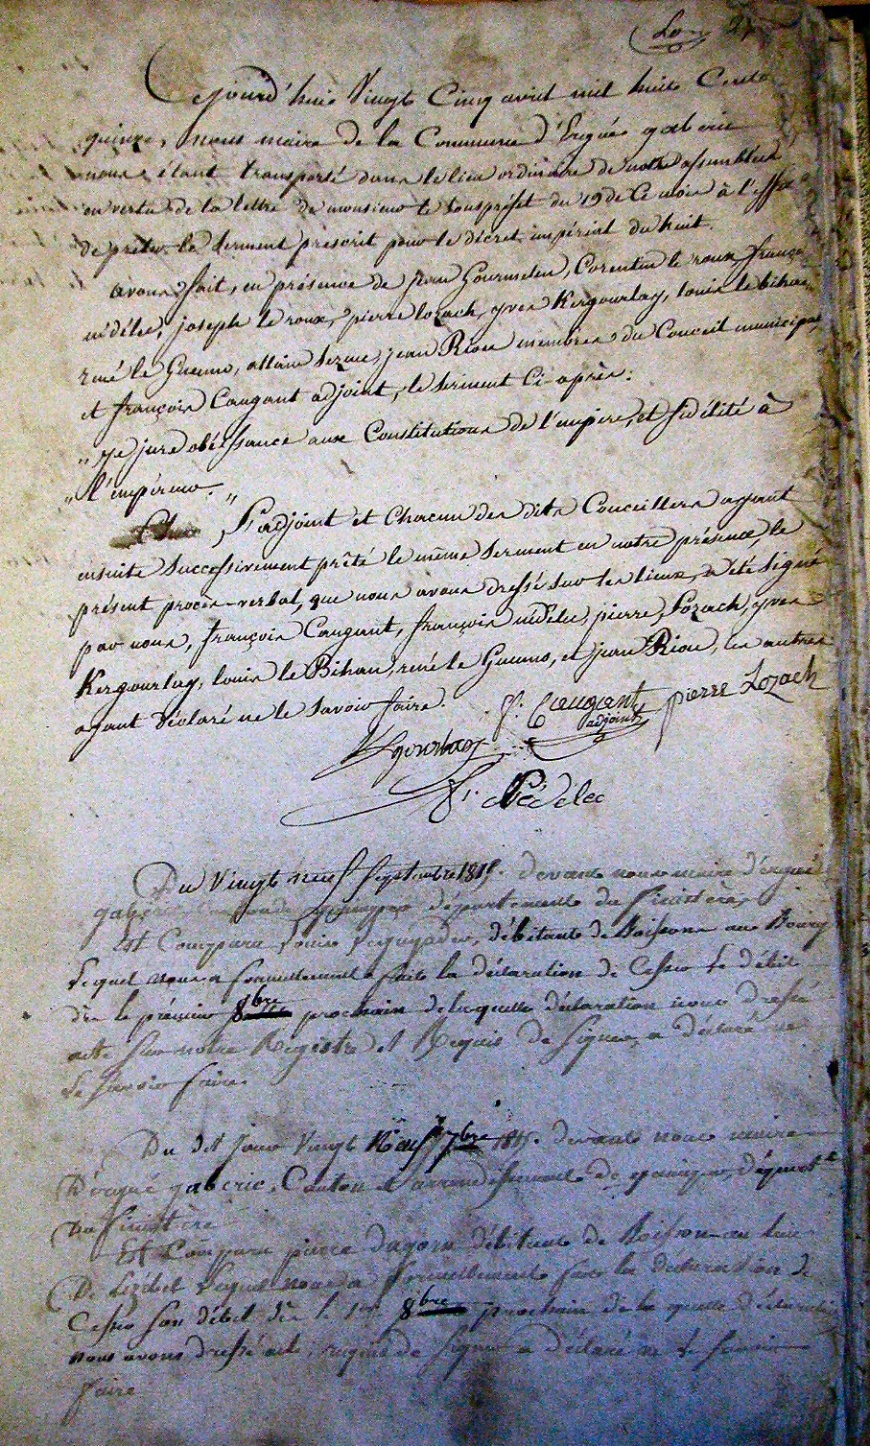 Cejourd'hui Vingt Cinq avril mil huit Cent
quinze, nous maire de la Commune d'Ergué gaberic
nous étant transporté dans le lieu ordinaire de notre assemblée
en vertu de la lettre de monsieur le sousprefet du 19 de Ce mois à l'effet
de prêter le serment prescrit pour le décret impérial du huit.
avons fait, en présence de jean Gourmelen, Corentin le roux, françois
nédélec, joseph le roux, pierre lozach, yves Kergourlay, louis le bihan
rené le Guenno, allain, jean Riou membres du Conseil municipal
et françois Caugant adjoint, le serment Ci-après:
„ je jure obéissance aux Constitutions de l'empire, et fidélité à
„ l'empereur. „
L'adjoint et Chacun des dits Conseillers ayant
ensuite successivement prêté le même serment en notre présence, le
présent procès-verbal, que nous avons dressé sur les lieux, a été signé
par nous, françois Caugant, françois nédélec, pierre Lozach, yves
Kergourlay, louis le Bihan, rené le Guenno, et jean Riou, les autres
ayant déclaré ne le savoir faire.
f. Caugant pierre Lozach
adjoint
Kgourlay
f. Nédélec
Du Vingt neuf Septembre 1815. devant nous maire d'ergué
gabéric, département du finistère,
Est Comparu Louis, débitant de Boissons au Bourg
Lequel nous a formellement fait la déclaration de Cesser le débit
dès le prémier 8bre prochain de laquelle déclaration nous dressé
acte sur notre Registre et Requis de signer, a déclaré ne
le savoir faire.
Du dit jour Vingt Neuf 7bre 1815. devant nous maire
D'ergué gaberic, Canton et arrondissement de quimper, départt
du finistère
Est Comparu pierre débitant de Boisson au lieu
De Lezébel Lequel nous a formellement fait la déclaration de
Cesser son débit dès le 1er 8bre prochain de la quelle déclaration
nous avons dressé acte, requis de signer a déclaré ne le savoir
faire